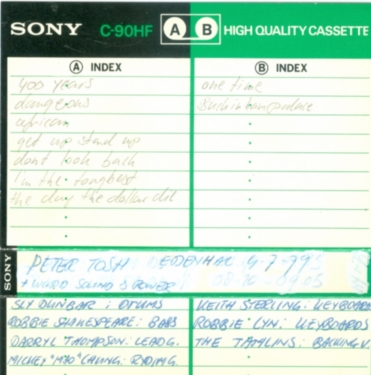 SONY C-90HF A B HIGH QUALITY CASSETTE
A INDEX
B INDEX
400 years
dangerous
african
get up stand up
dont look back
I'm the toughest
the day the dollar die
one time
Buckinhampalace
SONY
PETER TOSH
+ WORD SOUND & POWER
SLY DUNBAR: DRUMS
ROBBIE SHAKESPEARE: BASS
DARRYL THOMPSON: LEAD G.
MIKEY "MAO" CHUNG: RYDIM G.
KEITH STERLING: KEYBOARDS
ROBBIE LYN: KEYBOARDS
THE TAMLINS: BACKING V.